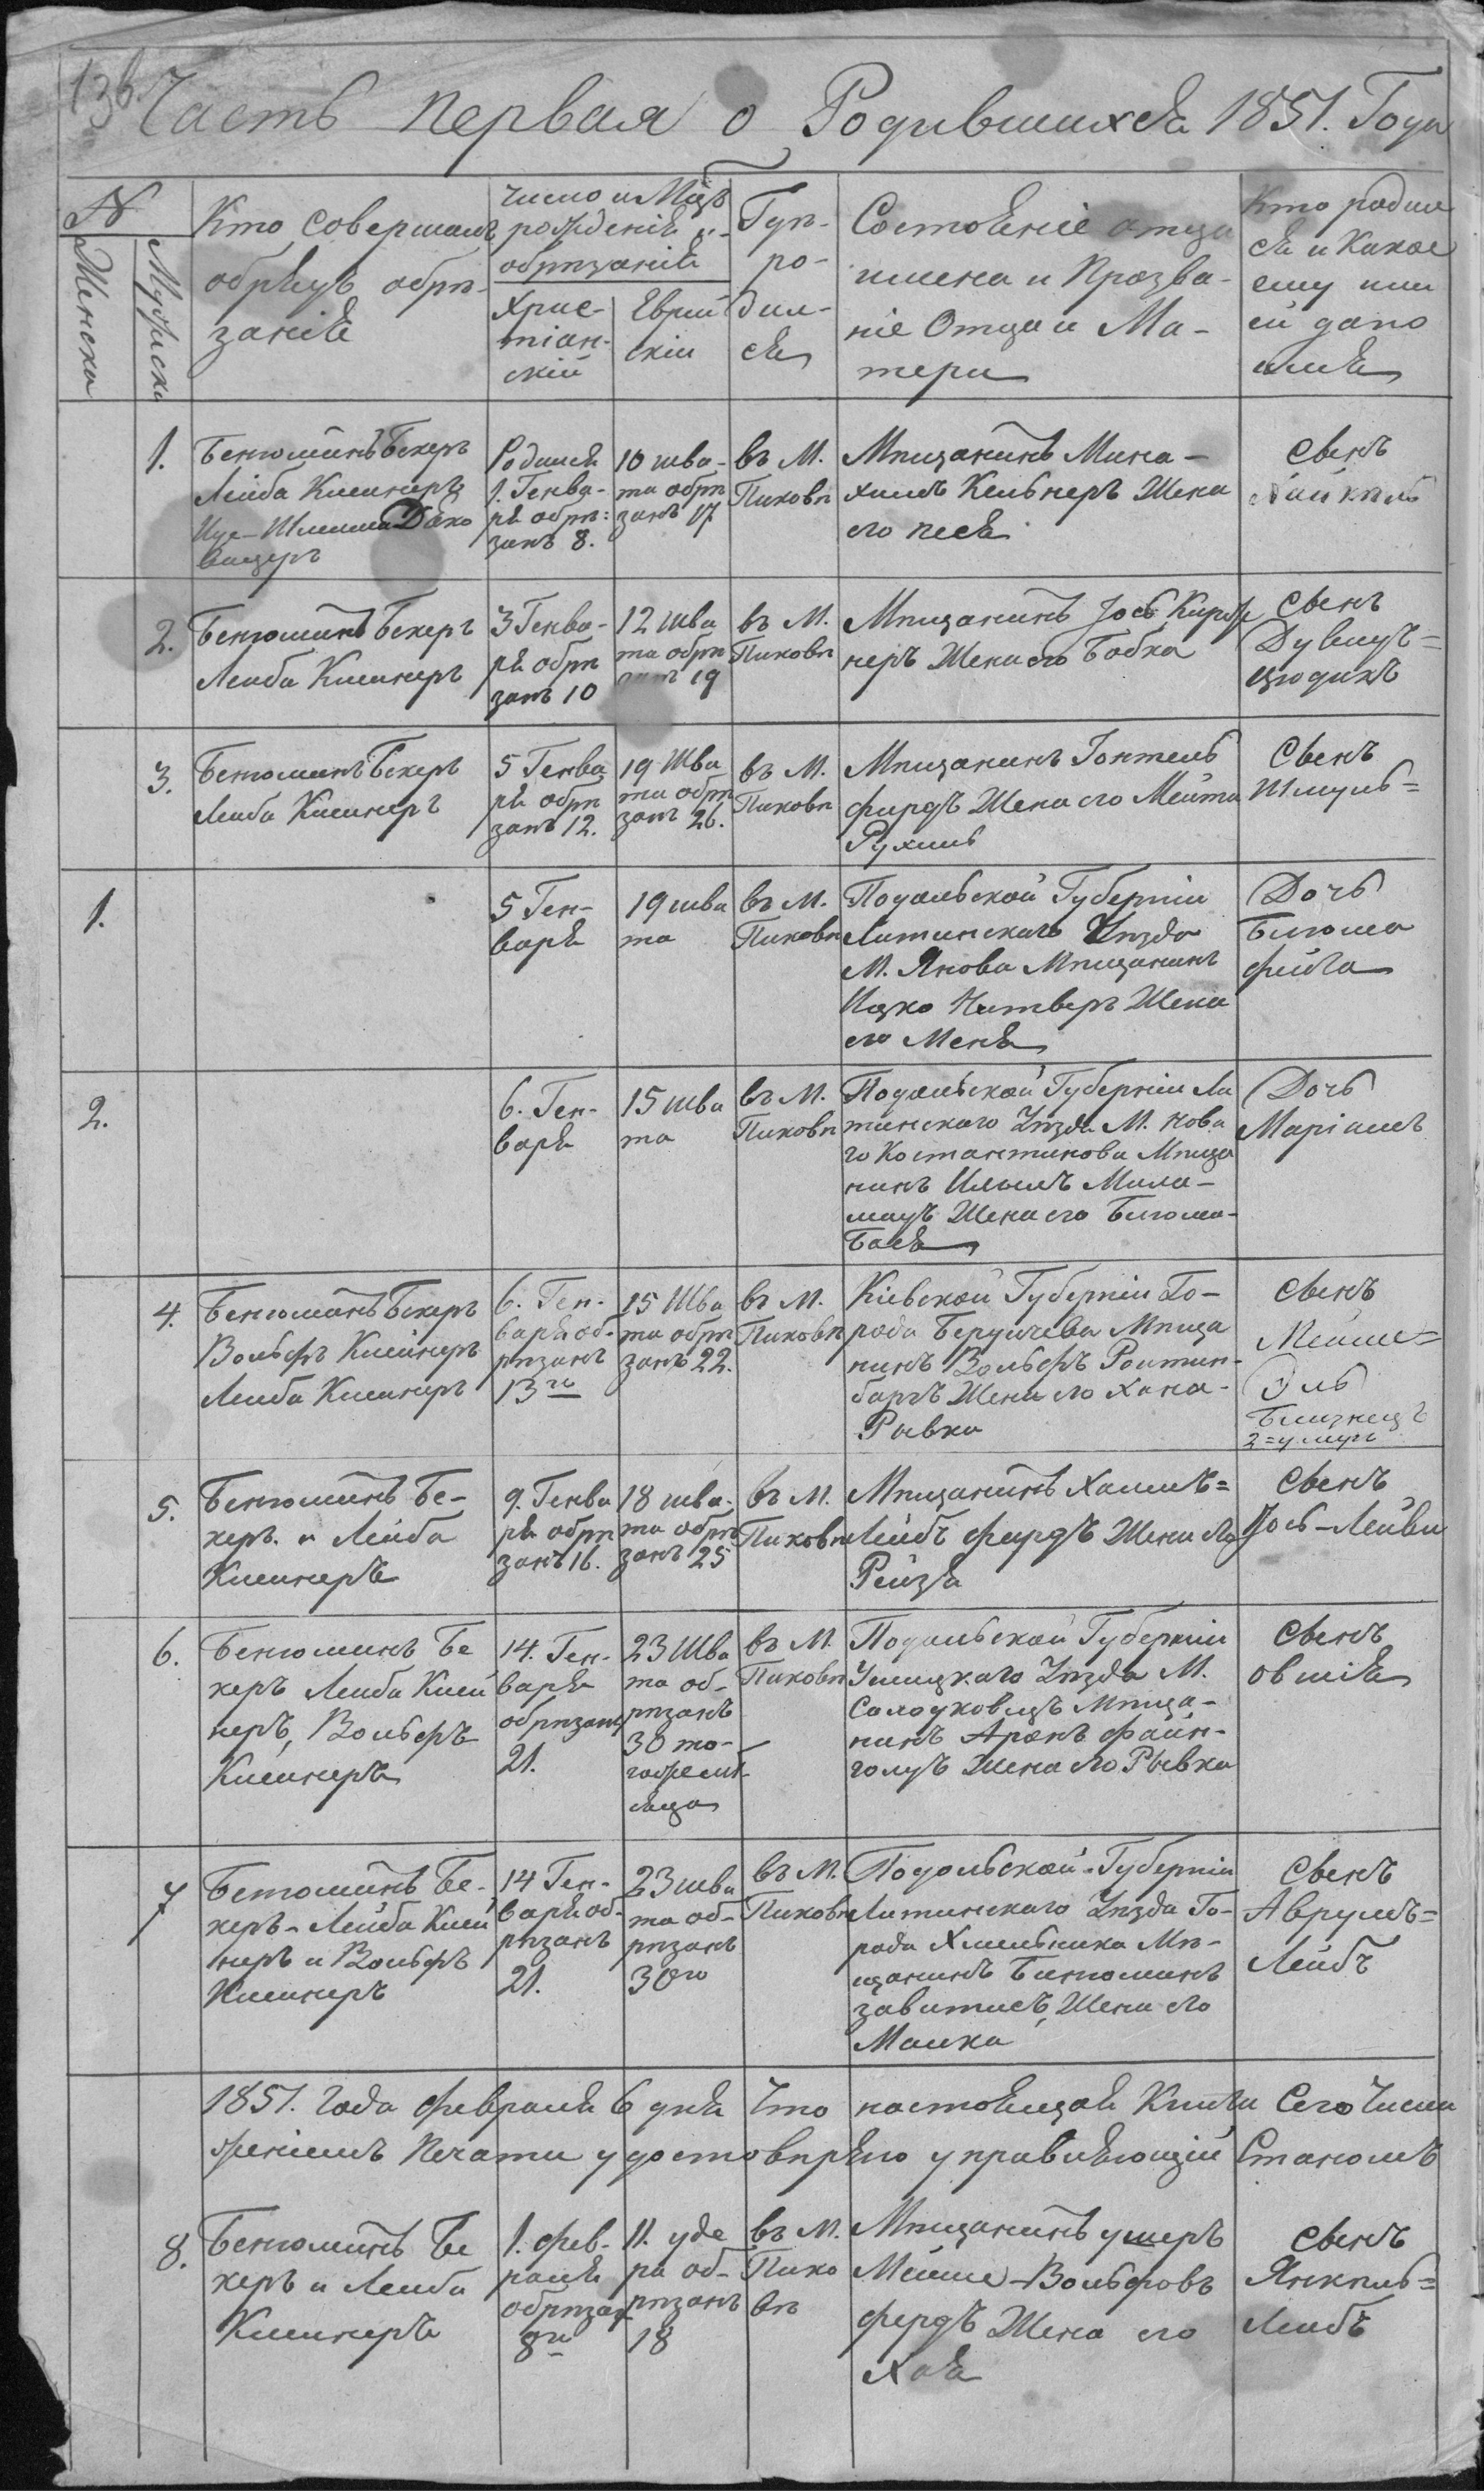 136.
Часть первая о Родившихся 1851. Года
N
Женска
Мужеска
Кто совершалъ
обрядъ обрѣ-
занія
число и Мѣць
рожденія и
обрѣзанія
Хрис-
тіан-
скій
Еврей
скій
Гдѣ
ро-
дил-
ся
Состояніе отца
имена и Прозва-
ніе Отца и Ма-
тери
Кто родил
ся и Какое
ему или
ей дано
имя
1.
Бенюминъ Бекеръ
Лейба Клейнеръ
вицеръ
Родился
1. Генва-
ря обрѣ:
занъ 8.
10 шва-
та обрѣ
занъ 17
въ М.
Пиковѣ
Мѣщанинъ Мена-
химъ Кельнеръ Жена
его Песя
свенъ
2.
Бенюминъ Бекеръ
Лейба Клейнеръ
3 Генва-
ря обрѣ
занъ 10
12 шва
та обрѣ
занъ 19
въ М.
Пиковѣ
Мѣщанинъ Іось
неръ Жена его Бобка
свенъ
3.
Бенюминъ Бекеръ
Лейба Клейнеръ
5 Генва
ря обрѣ
занъ 12.
19 Шва
та обрѣ
занъ 26.
въ М.
Пиковѣ
Мѣщанинъ
фердъ Жена его Мейта
Рухля
Свенъ
Шмуль=
1.
5 Ген-
варя
19 шва
та
въ М.
Пиковѣ
Подольской Губерніи
Литинскаго Уѣзда
М. Янова Мѣщанинъ
Ицко Жена
его Меня
Дочь
Блюма
фейга
2.
6. Ген-
варя
15 шва
та
въ М.
Пиковѣ
Подольской Губерніи Ли
тинскаго Уѣзда М. Нова
го Костантинова Мѣща
нинъ Мила-
медъ Жена его Блюма-
Бася
Дочь
Маріамъ
4.
Бенюминъ Бекеръ
Вольфъ Клейнеръ
Лейба Клейнеръ
6. Ген-
варя об-
рѣзанъ
13го
15 Шва
та обрѣ
занъ 22.
въ М.
Пиковѣ
Кіевской Губерніи Го-
рода Бердичева Мѣща
нинъ Вольфъ Ройтин-
баргъ Жена его Хана-
Рывка
свенъ
Мейше=
Эль
Близнецъ
2=умеръ
5.
Бенюминъ Бе-
керъ. и Лейба
Клейнеръ
9. Генва
ря обрѣ
занъ 16.
18 шва-
та обрѣ
занъ 25
въ М.
Пиковѣ
Мѣщанинъ Хаимъ=
Лейбъ фердъ Жена его
Рейзя
свенъ
Іось-Лейви
6.
Бенюминъ Бе
керъ Лейба Клей
неръ, Вольфъ
Клейнеръ
14. Ген-
варя
обрѣзанъ
21.
23 Шва
та об-
рѣзанъ
30 то-
гожъ мѣ
сяца
въ М.
Пиковѣ
Подольской Губерніи
Ушицкаго Уѣзда М.
Солодковецъ Мѣща-
нинъ Аронъ файн-
голдъ Жена его Рывка
свенъ
овшія
7
Бенюминъ Бе-
керъ-Лейба Клей
неръ и Вольфъ
Клейнеръ
14 Ген-
варя об-
рѣзанъ
21.
23 шва
та об-
рѣзанъ
30го
въ М.
Пиковѣ
Подольской Губерніи
Литинскаго Уѣзда Го-
рода Хмельника Мѣ-
щанинъ Бенюминъ
Жена его
Малка
свенъ
Аврумъ=
Лейбъ
1851. Года февраля 6 дня Что настоящая Книга Сего Числа
женіемъ Печати удостовѣряю управляющій Станомъ
8.
Бенюминъ Бе
керъ и Лейба
Клейнеръ
1. фев-
раля
обрѣзан
8го
11. уде
ра об-
рѣзанъ
18
въ М.
Пико
вѣ
Мѣщанинъ ушеръ
Мейше-Вольфовъ
фердъ Жена его
Хая
свенъ
Янкель=
Лейбъ